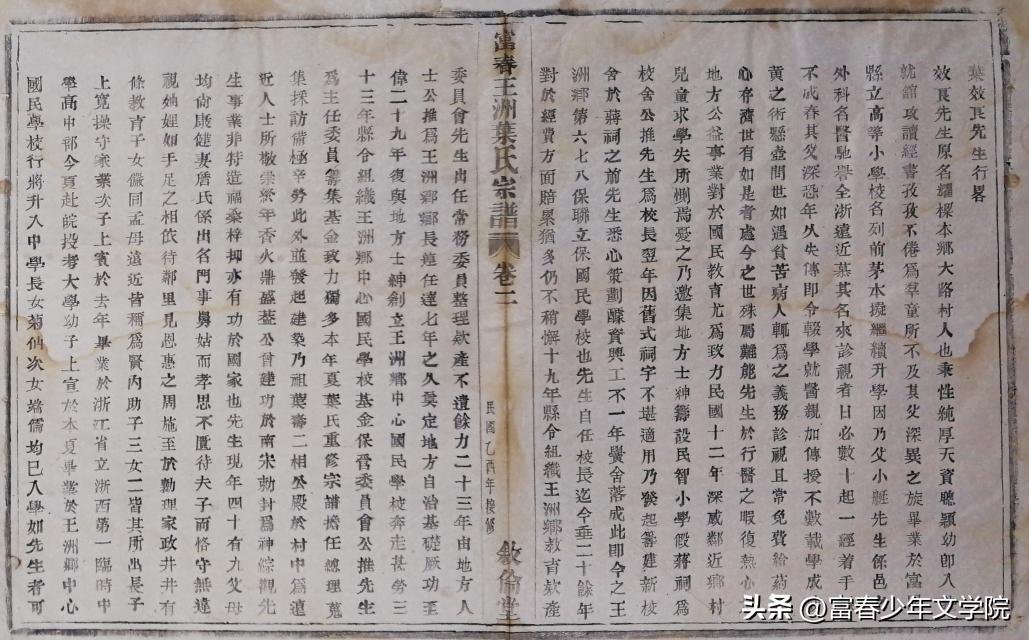 葉效良先生行畧
效良先生原名耀樑本鄉大路村人也秉性純厚天資聰穎幼卽入
就館攻讀經書孜孜不倦爲羣童所不及其父深異之旋畢業於富
縣立高等小學校名列前茅本擬繼續升學因乃父小艇先生係邑
外科名醫馳譽全浙遠近慕其名求診視者日必數十起一經着手
不成春其父深恐年久失傳卽令輟學就醫親加傳授不數載學成
黄之術懸壺問世如遇貧苦病人輒爲之義務診視且常免費給葯
心存濟世有如是者處今之世殊屬難能先生於行醫之暇復熱心
地方公益事業對於國民教育尤爲致力民國十二年深感鄰近鄉村
兒童求學失所惻焉憂之乃邀集地方士紳籌設民智小學假蔣祠爲
校舍公推先生爲校長翌年因舊式祠宇不堪適用乃發起籌建新校
舍於蔣祠之前先生悉心策劃醵資興工不一年黌舍落成此卽今之王
洲鄉第六七八保聯立保國民學校也先生自任校長迄今垂二十餘年
對於經費方面賠累猶多仍不稍懈十九年縣令組織王洲鄉教育欵產
富春王洲葉氏宗譜 卷二
民國乙酉年接修 敘倫堂
委員會先生出任常務委員整理欵產不遺餘力二十三年由地方人
士公推爲王洲鄉鄉長連任達七年之久奠定地方自治基礎厥功至
偉二十九年復與地方士紳創立王洲鄉中心國民學校奔走甚勞三
十三年縣令組織王洲鄉中心國民學校基金保管委員會公推先生
爲主任委員籌集基金致力獨多本年夏葉氏重修宗譜擔任總理蒐
集採訪備極辛勞此外並發起建築乃祖葉壽二相公殿於村中爲遠
近人士所敬崇終年香火鼎盛葢公曾建功於南宋勅封爲神綜觀先
生事業非特造福桑梓抑亦有功於國家也先生現年四十有九父母
均尙康健妻盾氏係出名門事舅姑而孝思不匱待夫子而恪守無違
視妯娌如手足之相依待鄰里見恩惠之周施至於勤理家政井井有
條教育子女儼同孟母遠近皆稱爲賢内助子三女二皆其所出長子
上寬操守家業次子上賓於去年畢業於浙江省立浙西第一臨時中
學高中部今夏赴皖投考大學幼子上宣於本夏畢業於王洲鄉中心
國民學校行將升入中學長女菊仙次女端儒均已入學如先生者可
头条 @富春少年文学院